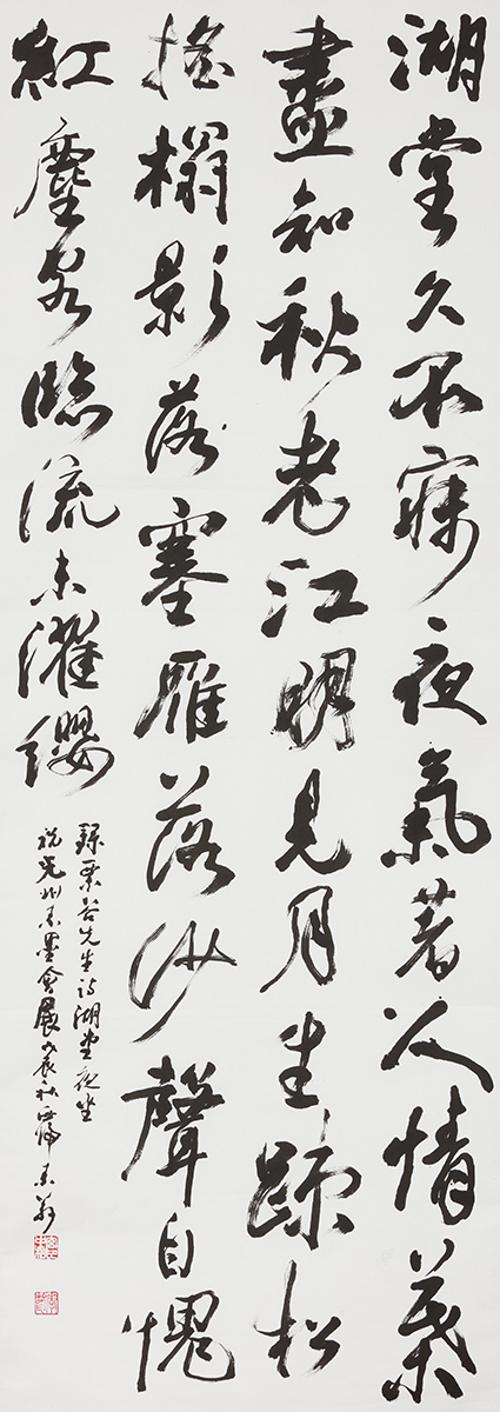 湖堂久不寐夜氣著人情葉
盡知秋老江明見月生踈松
搖榻影落塞雁落沙聲自愧
紅塵客臨流未濯纓
錄栗谷先生詩湖堂夜坐
祝光州墨會展戊辰秋